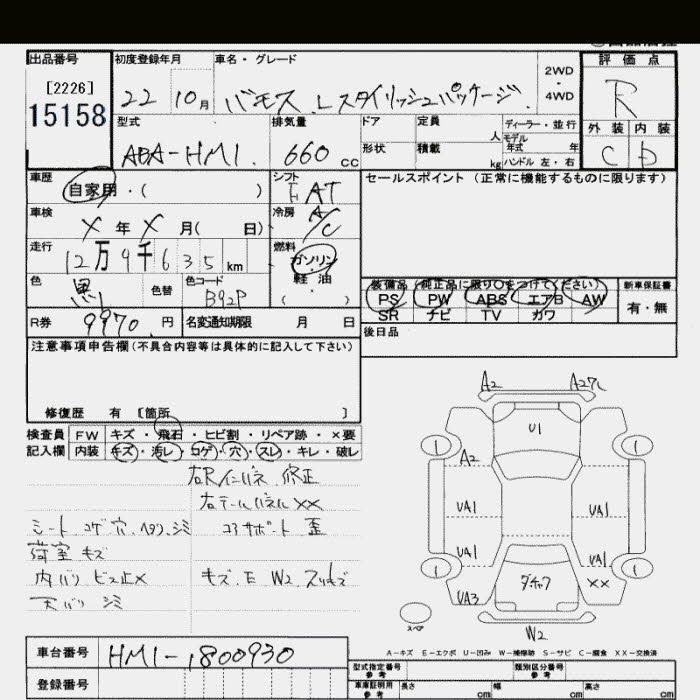 出品番号
[2226]
15158
初度登録年月
22 10月
車名・グレード
バモス Lスタイリッシュパッケージ
2WD・4WD
評価点
R
外装 内装
C D
型式
ABA-HM1
排気量
660 cc
ドア
形状
定員 人
積載 kg
ディーラー・並行
モデル年式 年
ハンドル 左・右
車歴
自家用・( )
シフト
F AT
セールスポイント(正常に機能するものに限ります)
車検
X 年 X 月( 日)
冷房
A/C
走行
12万9千635km
燃料
ガソリン
軽油
( )
色
黒
色替
色コード
B92P
装備品(純正品に限り○をつけてください)
PS PW ABS エアB AW
SR ナビ TV カワ
新車保証書
有・無
R券
9970円
名変通知期限 月 日
後日品
注意事項申告欄(不具合内容等は具体的に記入して下さい)
修復歴 有 [箇所 ]
検査員記入欄
FW キズ・飛石・ヒビ割・リペア跡・×要
内装 キズ・汚レ・コゲ・穴・スレ・キレ・破レ
右Rインパネ 修正
右テールパネル XX
シート コゲ 穴 ヘタリ シミ
コアサポート 歪
荷室 キズ
内バリ ビス止×
キズ、E W2 スリキズ
天バリ シミ
A2
A2
U1
A2
UA1
UA1
UA1
UA1
XX
UA3
W2
1
1
1
1
スペア
A-キズ E-エクボ U-凹み W-補修跡 S-サビ C-腐食 XX-交換済
車台番号
HM1-1800930
登録番号
型式指定番号 参考
類別区分番号 参考
車庫証明用 参考
長さ cm
幅 cm
高さ cm